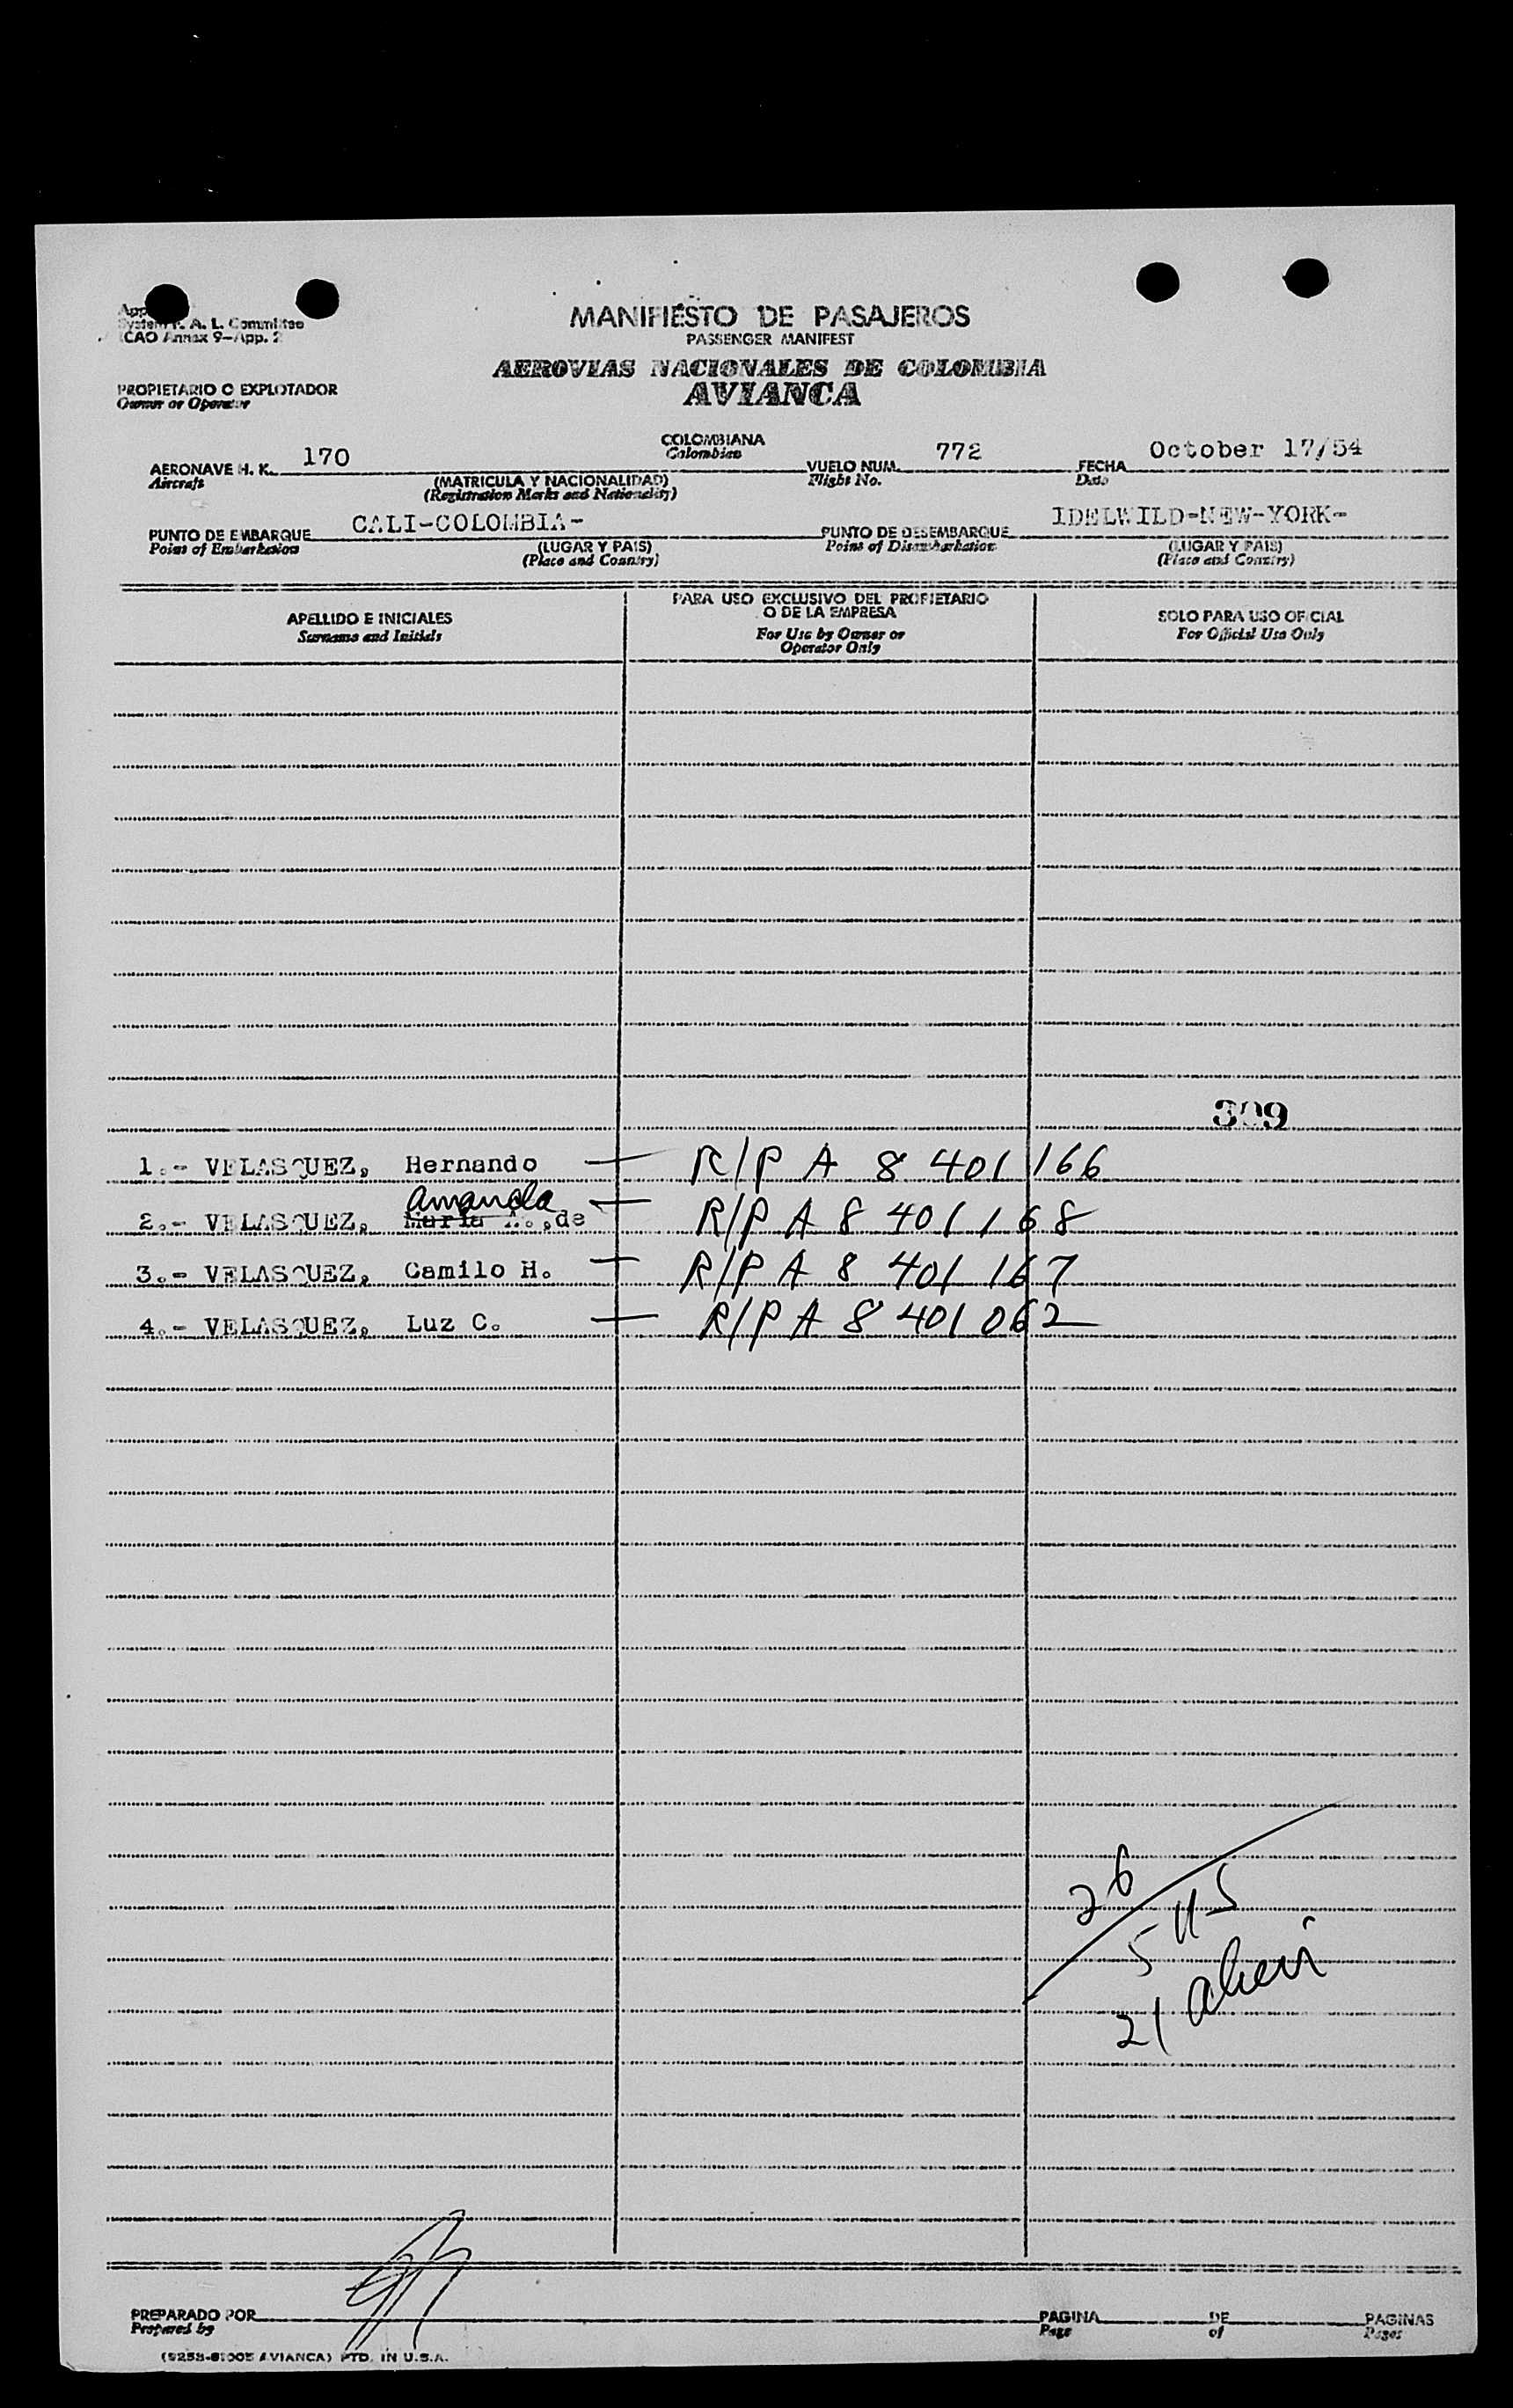 MANIFIESTO DE PASAJEROS
System F. A. L. Committee
PASSENGER MANIFEST
ICAO Annex 9-App. 2
AEROVIAS NACIONALES DE COLOMBIA
AVIANCA
PROPIETARIO O EXPLOTADOR
Owner or Operator
COLOMBIANA
Colombian
AERONAVE H. K. 170 VUELO NUM. 772 FECHA October 17/54
Aircraft (MATRICULA Y NACIONALIDAD) Flight No. Date
(Registration Marks and Nationality)
PUNTO DE EMBARQUE CALI-COLOMBIA- PUNTO DE DESEMBARQUE IDELWILD-NEW-YORK-
Point of Embarkation (LUGAR Y PAIS) Point of Disembarkation (LUGAR Y PAIS)
(Place and Country) (Place and Country)
APELLIDO E INICIALES
Surname and Initials
PARA USO EXCLUSIVO DEL PROPIETARIO
O DE LA EMPRESA
For Use by Owner or
Operator Only
SOLO PARA USO OFICIAL
For Official Use Only
309
1.- VELASQUEZ, Hernando — R/P A 8 401 166
Amanda
2.- VELASQUEZ, Maria A., de — R/P A 8 401 168
3.- VELASQUEZ, Camilo H. — R/P A 8 401 167
4.- VELASQUEZ, Luz C. — R/P A 8 401 062
26
5 US
21 alien
PREPARADO POR PAGINA DE PAGINAS
Prepared by Page of Pages
AVIANCA) PTD. IN U.S.A.